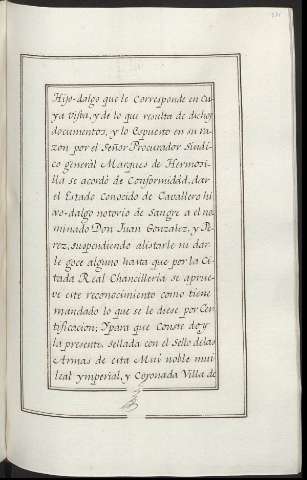 Hijo-dalgo que le Corresponde en Cu
ya Vista, y de lo que resulta de dichos
documentos, y lo Espuesto en su ra
zon por el Señor Procurador Sindi
co general Marques de Hermosi
lla se acordó de Conformidad, dar
el Estado Conocido de Cavallero hi
xo-dalgo notorio de Sangre a el no
minado Don Juan Gonzalez, y Pe
rez, suspendiendo alistarle ni dar
le goce alguno hasta que por la Ci
tada Real Chancilleria se aprue
ve este reconocimiento como tiene
mandado lo que se le diese por Cer
tificacion; Ypara que Conste doy
la presente, sellada con el Sello de las
Armas de esta Mui noble mui
leal ymperial, y Coronada Villa de